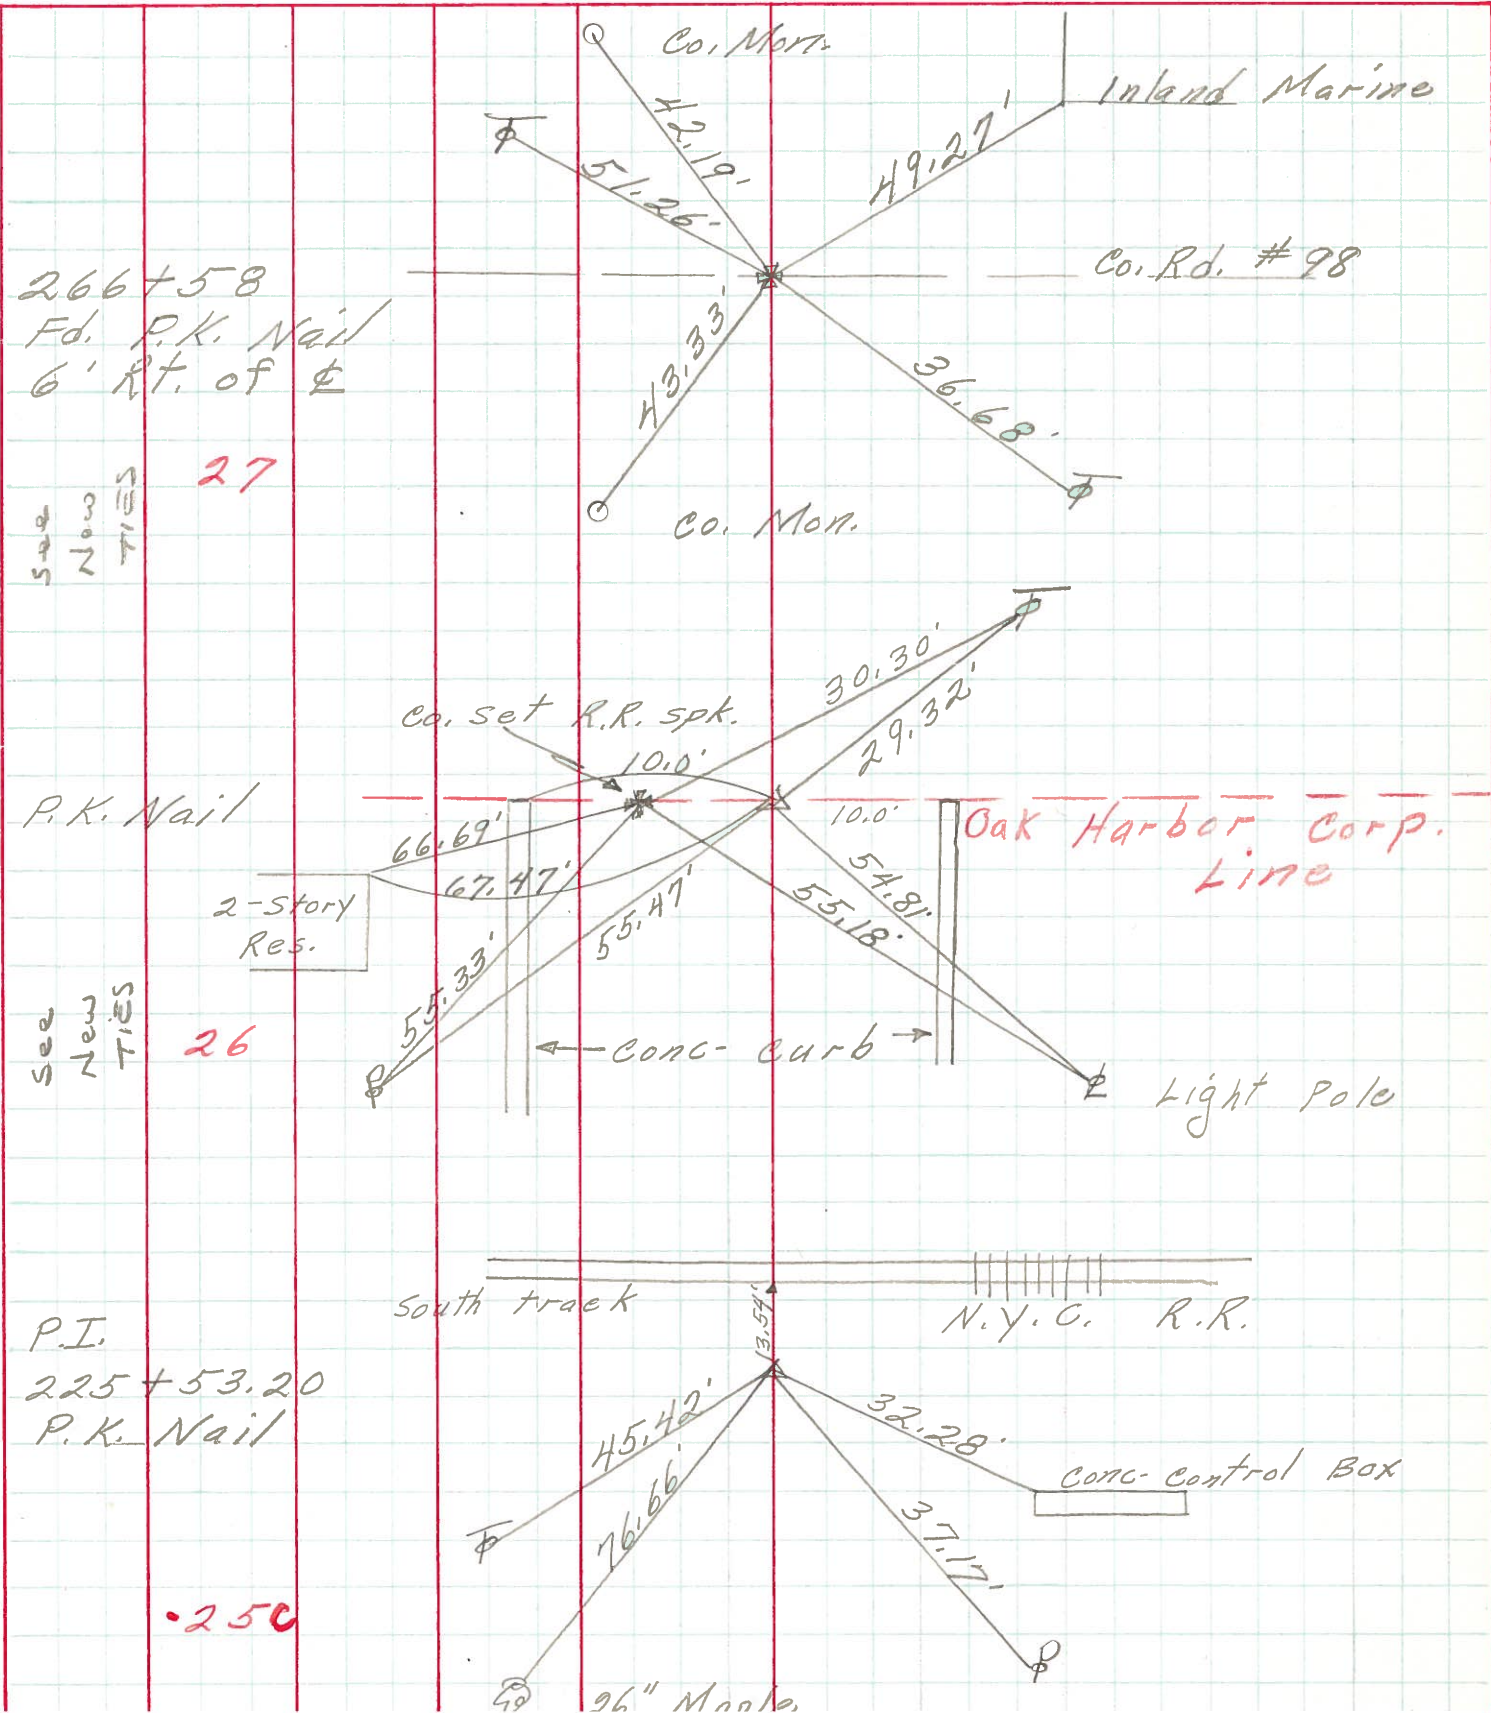 Co. Mon.
Inland Marine
42.19'
51.26'
49.27'
Co. Rd. # 98
266+58
Fd. P.K. Nail
6' Rt. of ₵
43.33'
36.68'
27
See
New
TIES
Co. Mon.
30.30'
29.32'
Co. Set R.R. spk.
10.0'
P.K. Nail
10.0'
Oak Harbor Corp.
Line
66.69'
67.47'
54.81'
55.18'
55.47'
55.33'
2-Story
Res.
See
New
TIES
26
Conc- Curb
Light Pole
South track
N.Y.C. R.R.
13.54'
P.I.
225+53.20
P.K. Nail
45.42'
32.28'
76.66'
37.17'
Conc- Control Box
25C
26" Maple